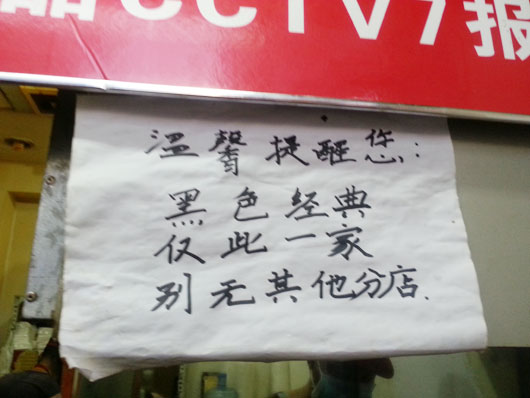 品CCTV7报
温馨提醒您:
黑色经典
仅此一家
别无其他分店.